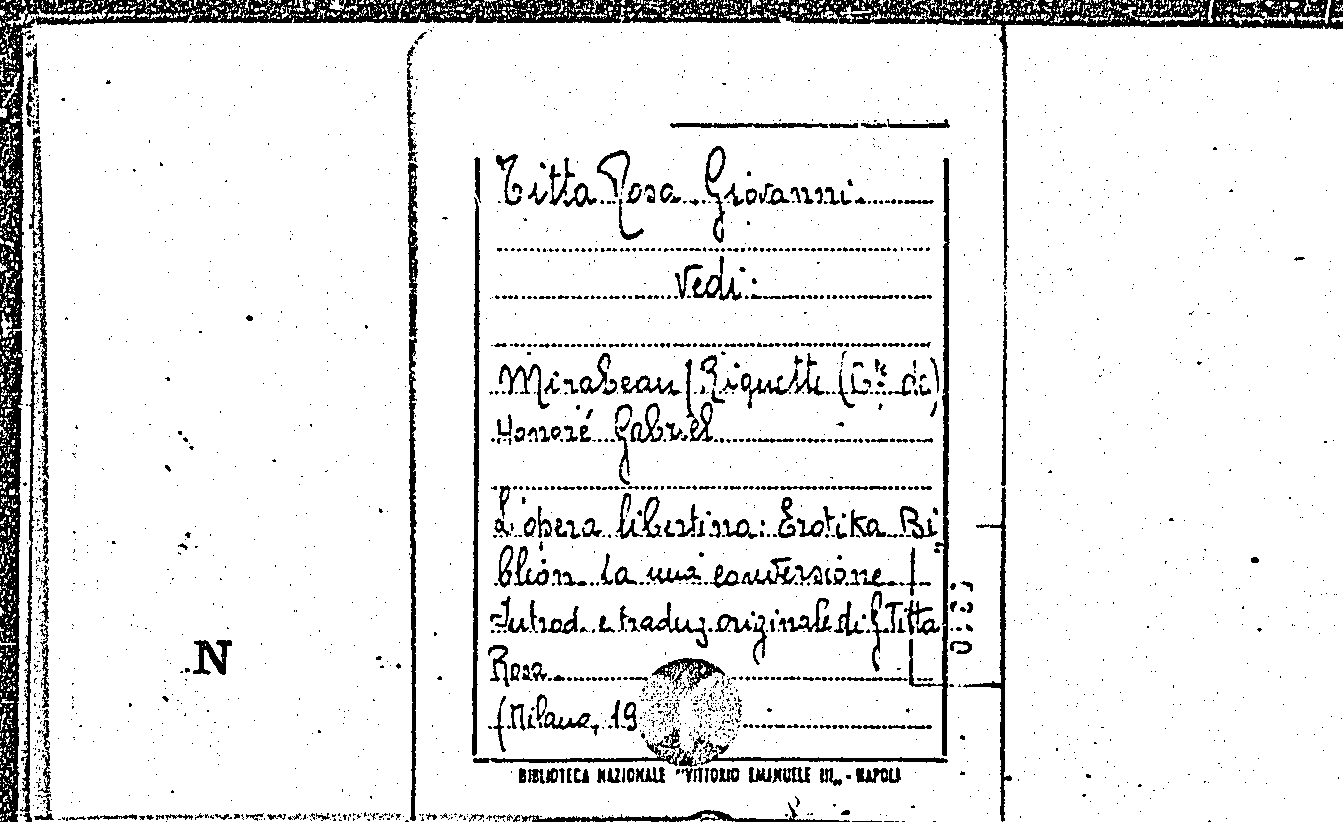 Titta Rosa Giovanni.
Vedi:
Mirabeau (Riquetti (C.te de)
Honoré Gabriel
L'opera libertina: Erotika Bi,,
blion. La mia conversione.
Introd. e traduz. originale di G. Titta
Rosa.
(Milano, 19
BIBLIOTECA NAZIONALE "VITTORIO EMANUELE III„ - NAPOLI
N